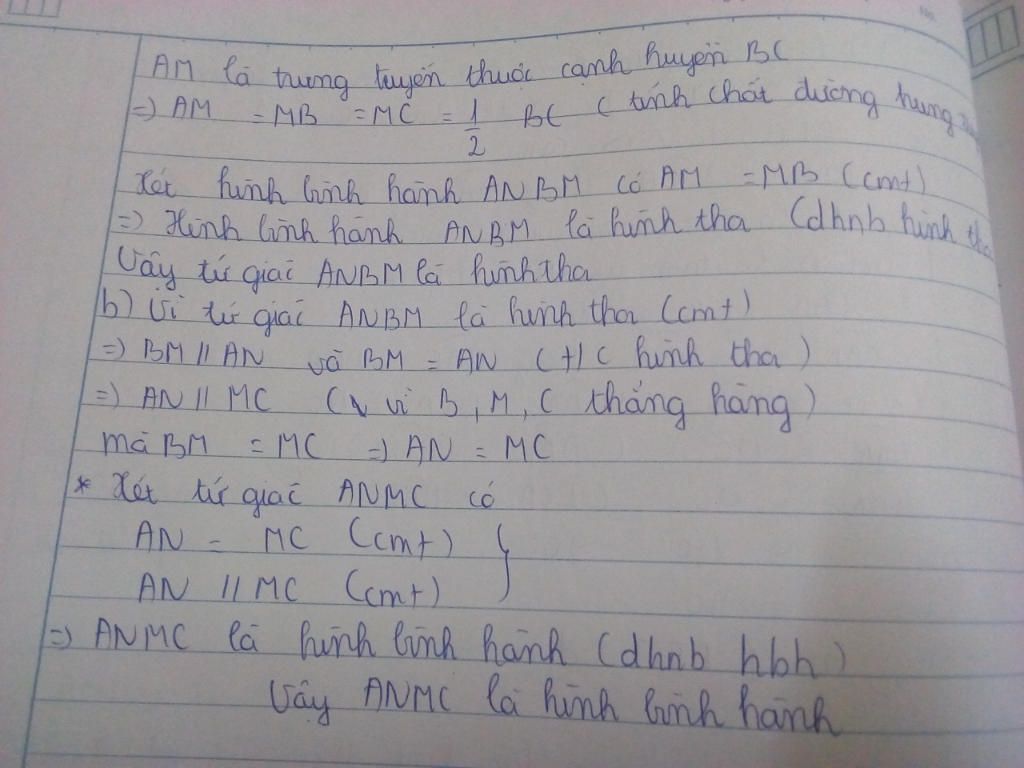 AM là trung tuyến thuộc cạnh huyền BC
=) AM = MB = MC = 1/2 BC ( tính chất đường trung
Xét hình bình hành ANBM có AM = MB (cmt)
=) Hình bình hành ANBM là hình thoi (dhnb hình
Vậy tứ giác ANBM là hình thoi
b) Vì tứ giác ANBM là hình thoi (cmt)
=) BM // AN và BM = AN (t/c hình thoi)
=) AN // MC (vì B, M, C thẳng hàng)
mà BM = MC =) AN = MC
* Xét tứ giác ANMC có
AN = MC (cmt) }
AN // MC (cmt)
=) ANMC là hình bình hành (dhnb hbh)
Vậy ANMC là hình bình hành